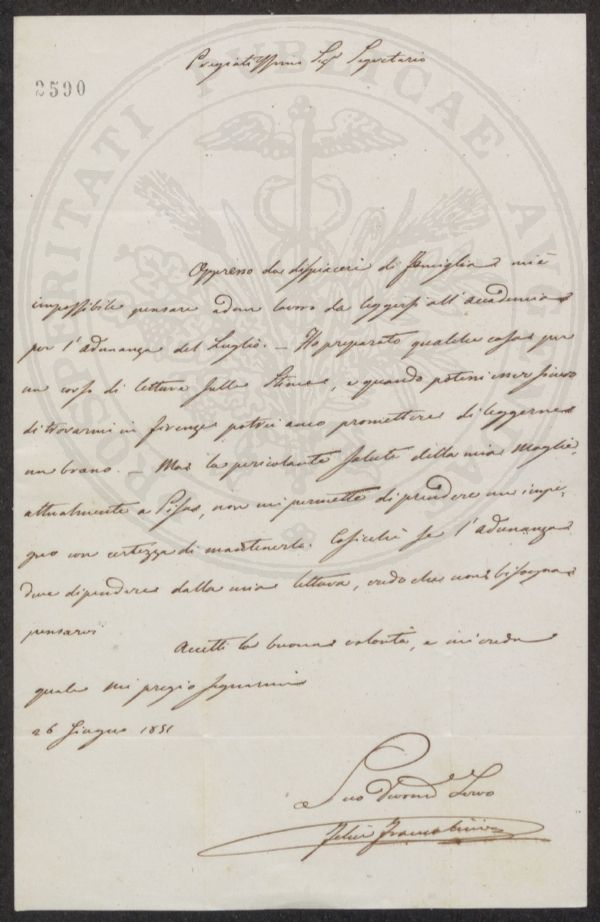 Pregiatissimo Sigr Segretario
2590
PROSPERITATI PUBLICAE AUGENDAE
Oppresso da dispiaceri di famiglia mi è
impossibile pensare ad un lavoro da leggersi all'accademia
per l'adunanza del Luglio. — Ho preparato qualche cosa per
un corso di letture sulla Stima, e quando potessi esser sicuro
di trovarmi in Firenze potrei anco promettere di leggerne
un brano. — Ma la pericolante salute della mia Moglie,
attualmente a Pisa, non mi permette di prendere un impe-
gno con certezza di mantenerlo. Cosicchè se l'adunanza
deve dipendere dalla mia lettura, credo che non bisogna
pensarvi
Accetti la buona volontà, e mi creda
quale mi pregio segnarmi
26 Giugno 1851
Suo Devmo Servo
Felice Francolini